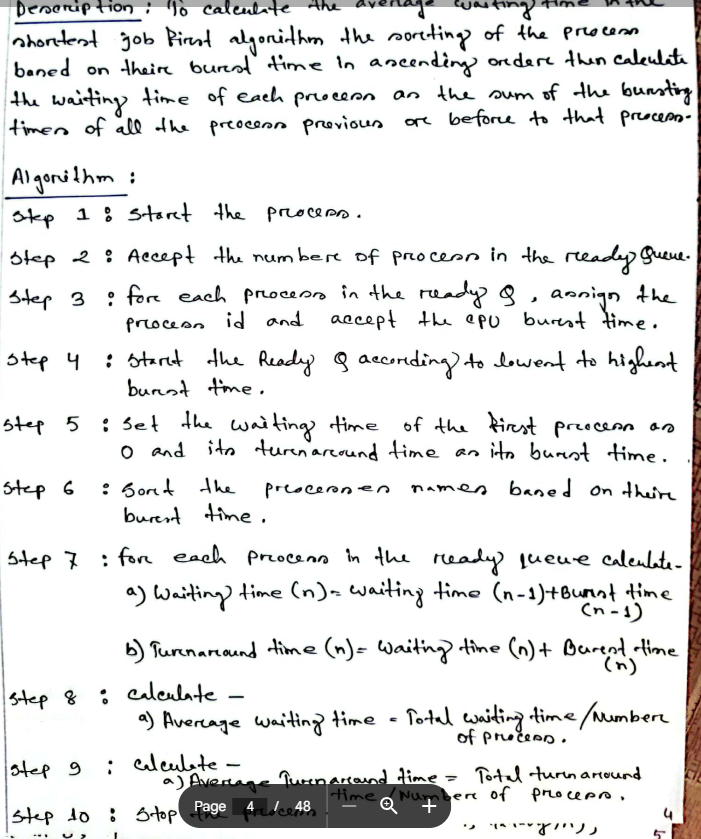 Description : To calculate the average waiting time in the
shortest job first algorithm the sorting of the process
based on their burst time in ascending order then calculate
the waiting time of each process as the sum of the bursting
times of all the process previous or before to that process.
Algorithm :
Step 1 : Start the process.
Step 2 : Accept the number of process in the ready Queue.
Step 3 : for each process in the ready Q , assign the
process id and accept the CPU burst time.
Step 4 : Start the Ready Q according to lowest to highest
burst time.
Step 5 : Set the waiting time of the first process as
0 and its turnaround time as its burst time.
Step 6 : Sort the processes names based on their
burst time.
Step 7 : for each process in the ready queue calculate-
a) Waiting time (n) = waiting time (n-1)+Burst time
(n-1)
b) Turnaround time (n) = Waiting time (n) + Burst time
(n)
Step 8 : calculate —
a) Average waiting time = Total waiting time /Number
of process.
Step 9 : calculate —
a) Average Turnaround time = Total turnaround
time /Number of process.
Step 10 : Stop the process.
Page 4 / 48 — +
4
5